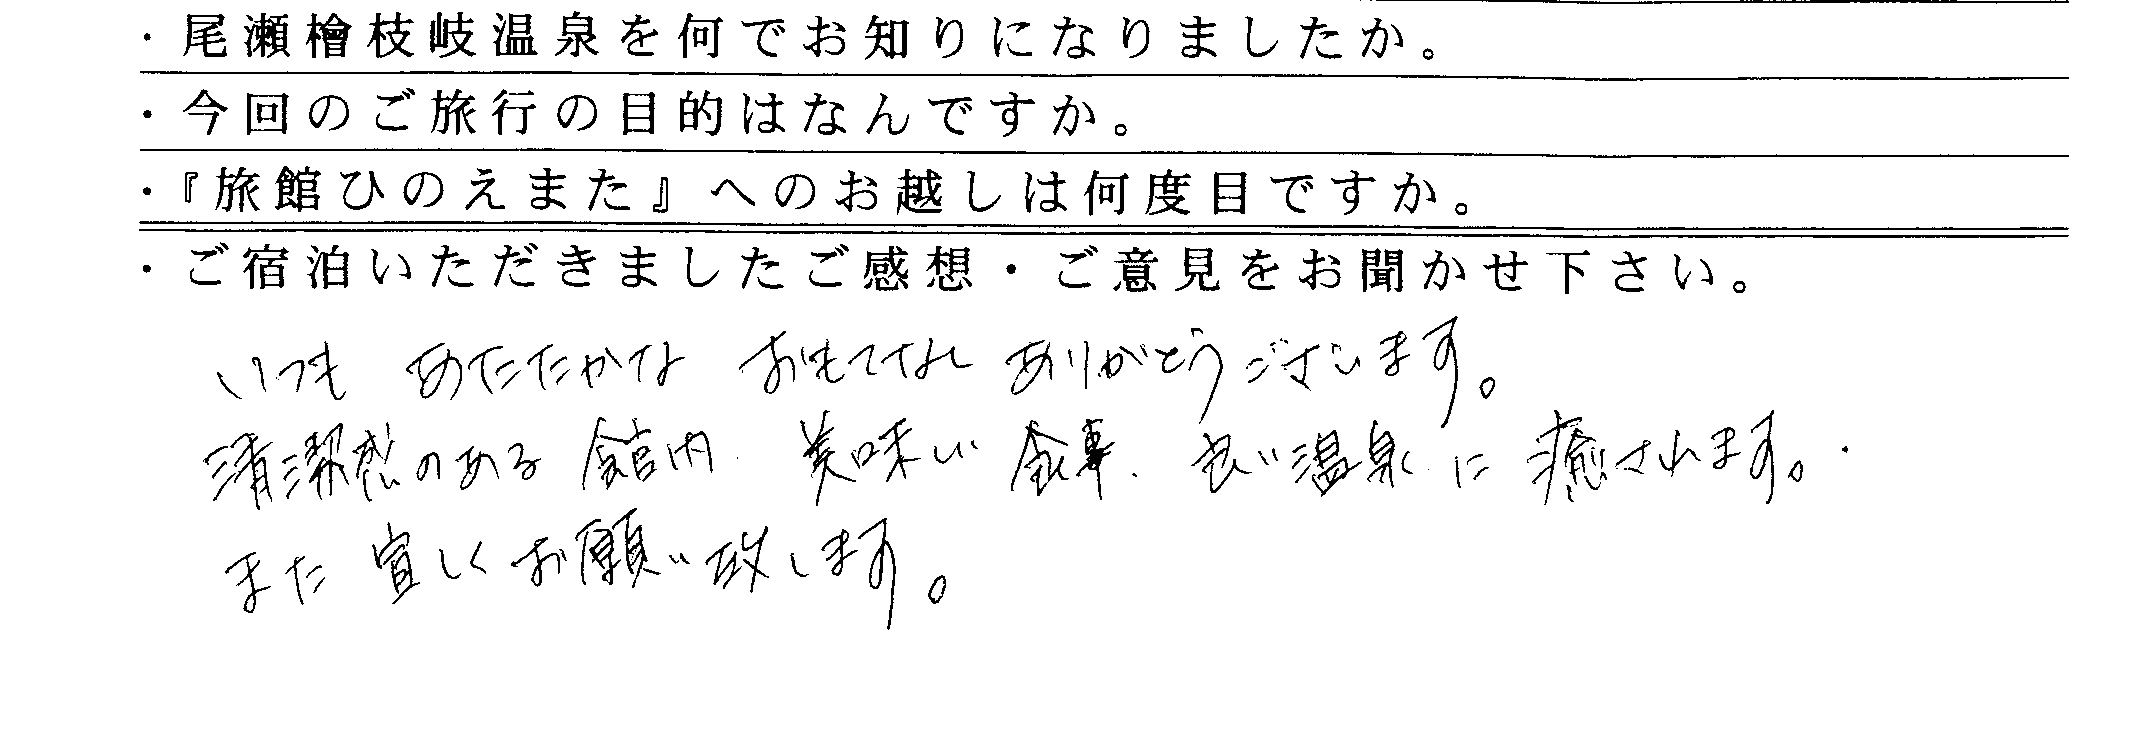 ・尾瀬檜枝岐温泉を何でお知りになりましたか。
・今回のご旅行の目的はなんですか。
・『旅館ひのえまた』へのお越しは何度目ですか。
・ご宿泊いただきましたご感想・ご意見をお聞かせ下さい。
いつも あたたかな おもてなし ありがとうございます。
清潔感のある 館内、美味しい 食事、良い温泉に 癒されます。
また 宜しくお願い致します。